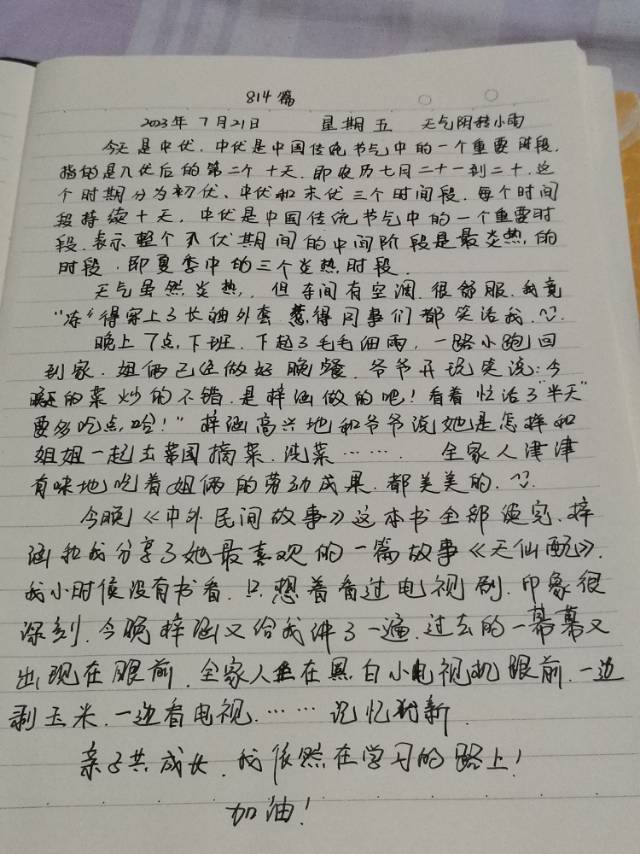 814篇
2023年7月21日 星期五 天气阴转小雨
今天是中伏.中伏是中国传统节气中的一个重要时段.
指的是入伏后的第二个十天.即农历七月二十一到二十.这
个时期分为初伏、中伏和末伏三个时间段.每个时间
段持续十天.中伏是中国传统节气中的一个重要时
段.表示整个入伏期间的中间阶段是最炎热的
时段.即夏季中的三个炎热时段.
天气虽然炎热,但车间有空调.很舒服.我竟
"冻"得穿上了长袖外套惹得同事们都笑话我.
晚上7点,下班.下起了毛毛细雨,一路小跑回
到家.姐俩已经做好晚餐.爷爷开玩笑说:今
晚的菜炒的不错.是梓涵做的吧!看着忙活了"半天"
要多吃点,哈!"梓涵高兴地和爷爷说她是怎样和
姐姐一起去菜园摘菜.洗菜……. 全家人津津
有味地吃着姐俩的劳动成果.都美美的.
今晚《中外民间故事》这本书全部读完.梓
涵和我分享了她最喜欢的一篇故事《天仙配》.
我小时侯没有书看.只想着看过电视剧.印象很
深刻.今晚梓涵又给我讲了一遍.过去的一幕幕又
出现在眼前.全家人坐在黑白小电视机眼前.一边
剥玉米.一边看电视.……记忆犹新.
亲子共成长.我依然在学习的路上!
加油!